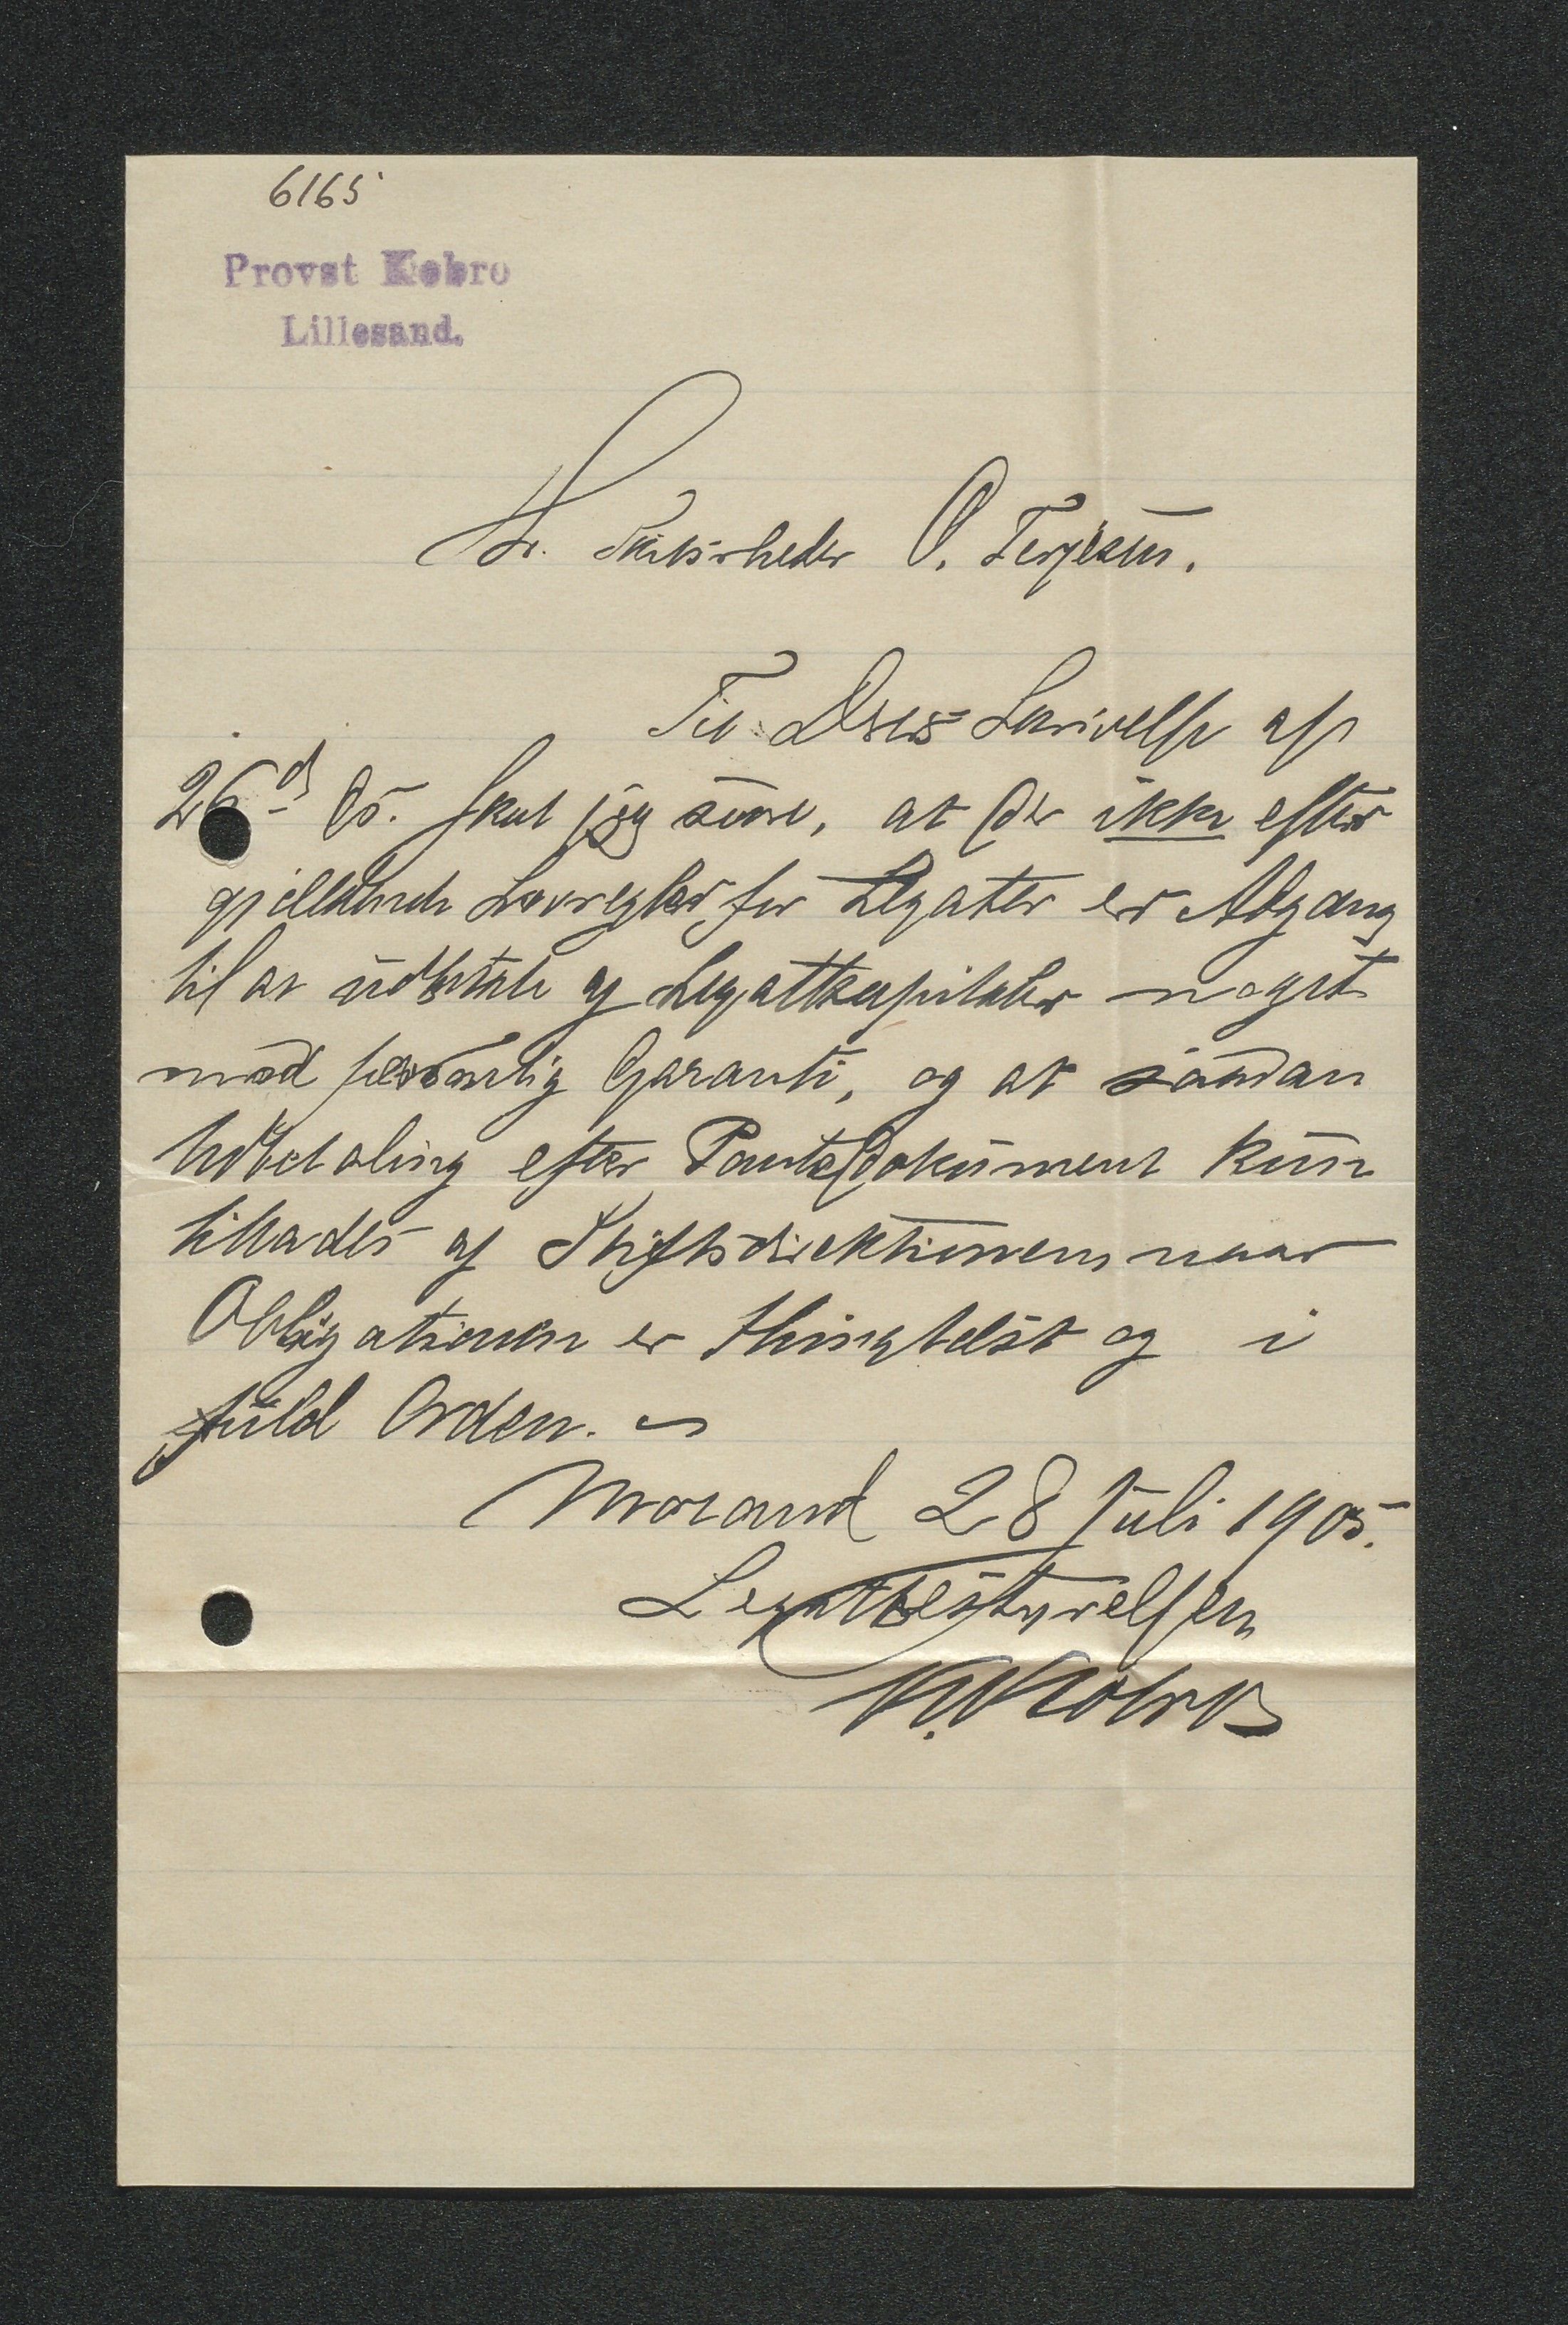 6165
Provst Kobro
Lillesand.
Hr. Skibsrheder O. Terjesen.
Til Deres Skrivelse af
26d ds. skal jeg svare, at der ikke efter
gjeldende Lovregler for Legater er Adgang
til at udbetale af Legatkapitaler noget
mod personlig Garanti, og at saadan
Udbetaling efter Pantedokument kun
tillades af Stiftsdirektionen naar
Obligationen er thinglest og i
fuld Orden.
Moland 28 Juli 1905.
Legatbestyrelsen
Kobro